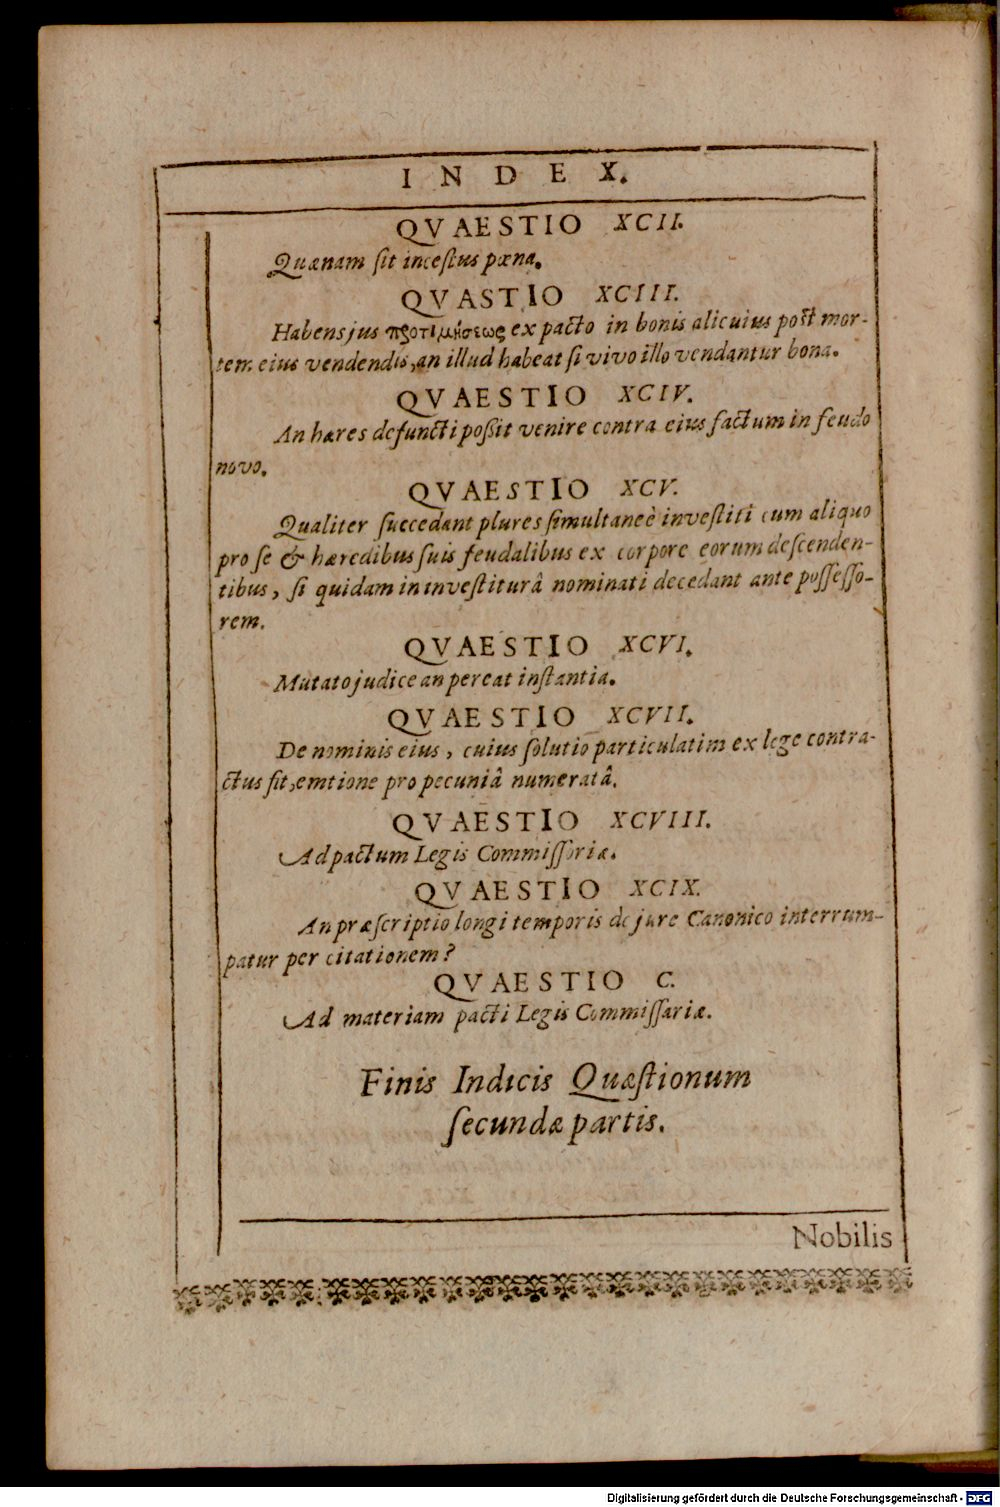 INDEX.
QVAESTIO XCII.
Quænam ſit inceſtus pœna.
QVASTIO XCIII.
Habens jus προτιμήσεως ex pacto in bonis alicuius poſt mor-
tem eius vendendis, an illud habeat ſi vivo illo vendantur bona.
QVAESTIO XCIV.
An hæres defuncti poßit venire contra eius factum in feudo
novo.
QVAESTIO XCV.
Qualiter ſuccedant plures ſimultaneè inveſtiti cum aliquo
pro ſe & hæredibus ſuis feudalibus ex corpore eorum deſcenden-
tibus, ſi quidam in inveſtiturâ nominati decedant ante poſſeſſo-
rem.
QVAESTIO XCVI.
Mutato judice an pereat inſtantia.
QVAESTIO XCVII.
De nominis eius, cuius ſolutio particulatim ex lege contra-
ctus ſit, emtione pro pecuniâ numeratâ.
QVAESTIO XCVIII.
Ad pactum Legis Commiſſoriæ.
QVAESTIO XCIX.
An præſcriptio longi temporis de jure Canonico interrum-
patur per citationem?
QVAESTIO C.
Ad materiam pacti Legis Commiſſariæ.
Finis Indicis Quæſtionum
ſecundæ partis.
Nobilis
Digitalisierung gefördert durch die Deutsche Forschungsgemeinschaft - DFG